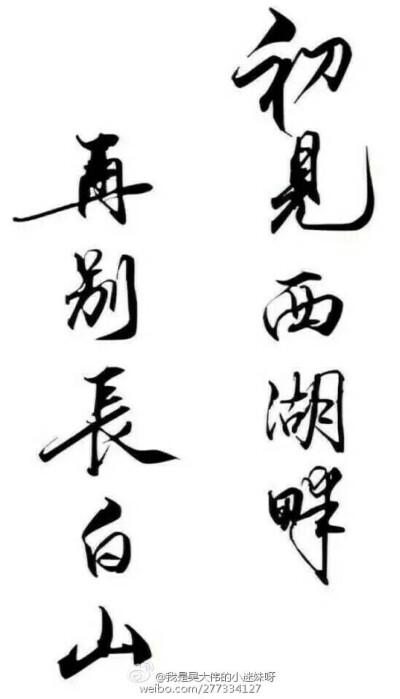 初見西湖畔
再别長白山
@我是吴大伟的小迷妹呀
weibo.com/277334127